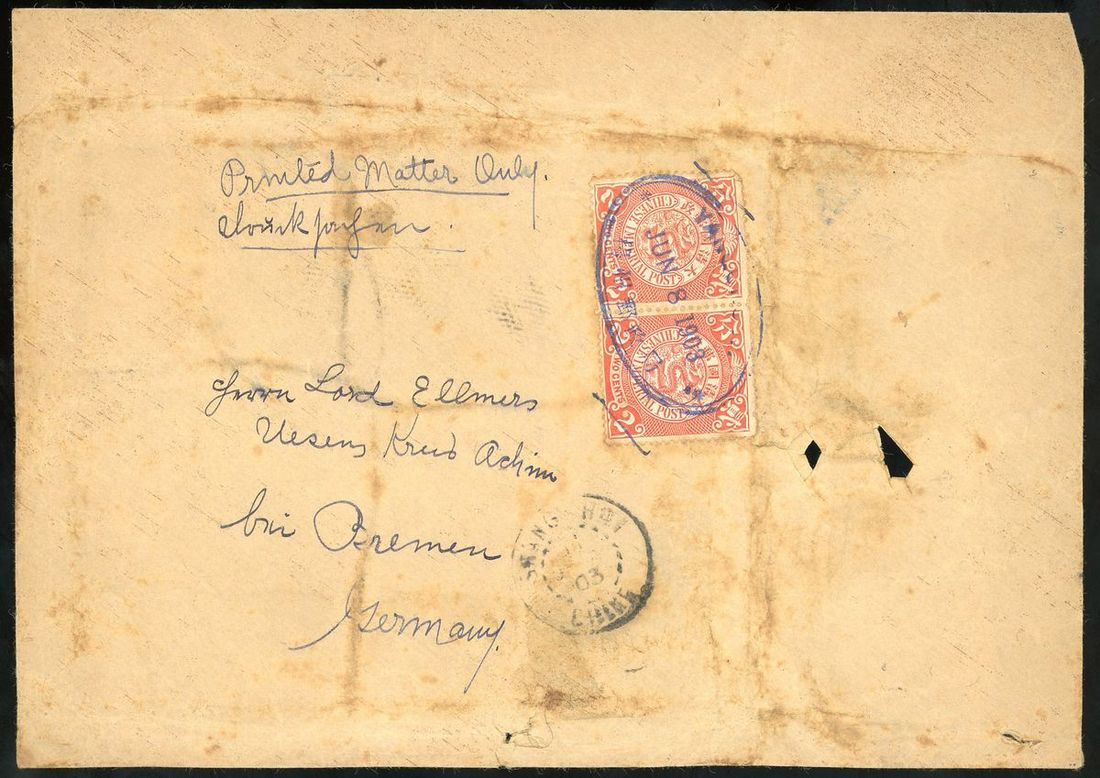 Printed Matter Only.
Drucksachen.
CHINESE IMPERIAL POST
2
JUN 8 1903
CHINESE IMPERIAL POST
TWO CENTS
2
Herrn Lord Ellmers
Uesens Kreis Achim
bei Bremen
Germany.
SHANG-HAI
03
CHINE